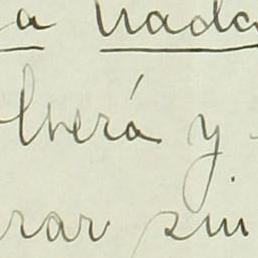 a nada
lverá y
rar sin